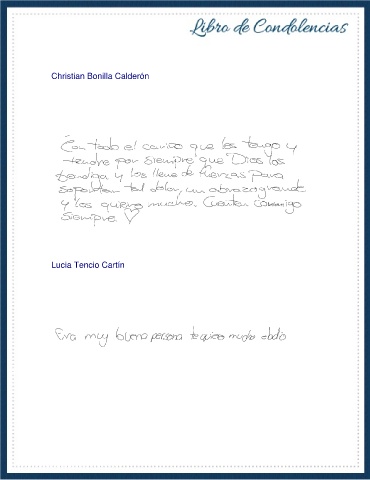 Libro de Condolencias
Christian Bonilla Calderón
Con todo el cariño que les tengo y
tendre por siempre que Dios los
bendiga y los llene de fuerzas para
soportar tal dolor, un abrazo grande
y los quiero mucho. Cuenten conmigo
siempre ♡
Lucia Tencio Cartín
Era muy buena persona te quiero mucho